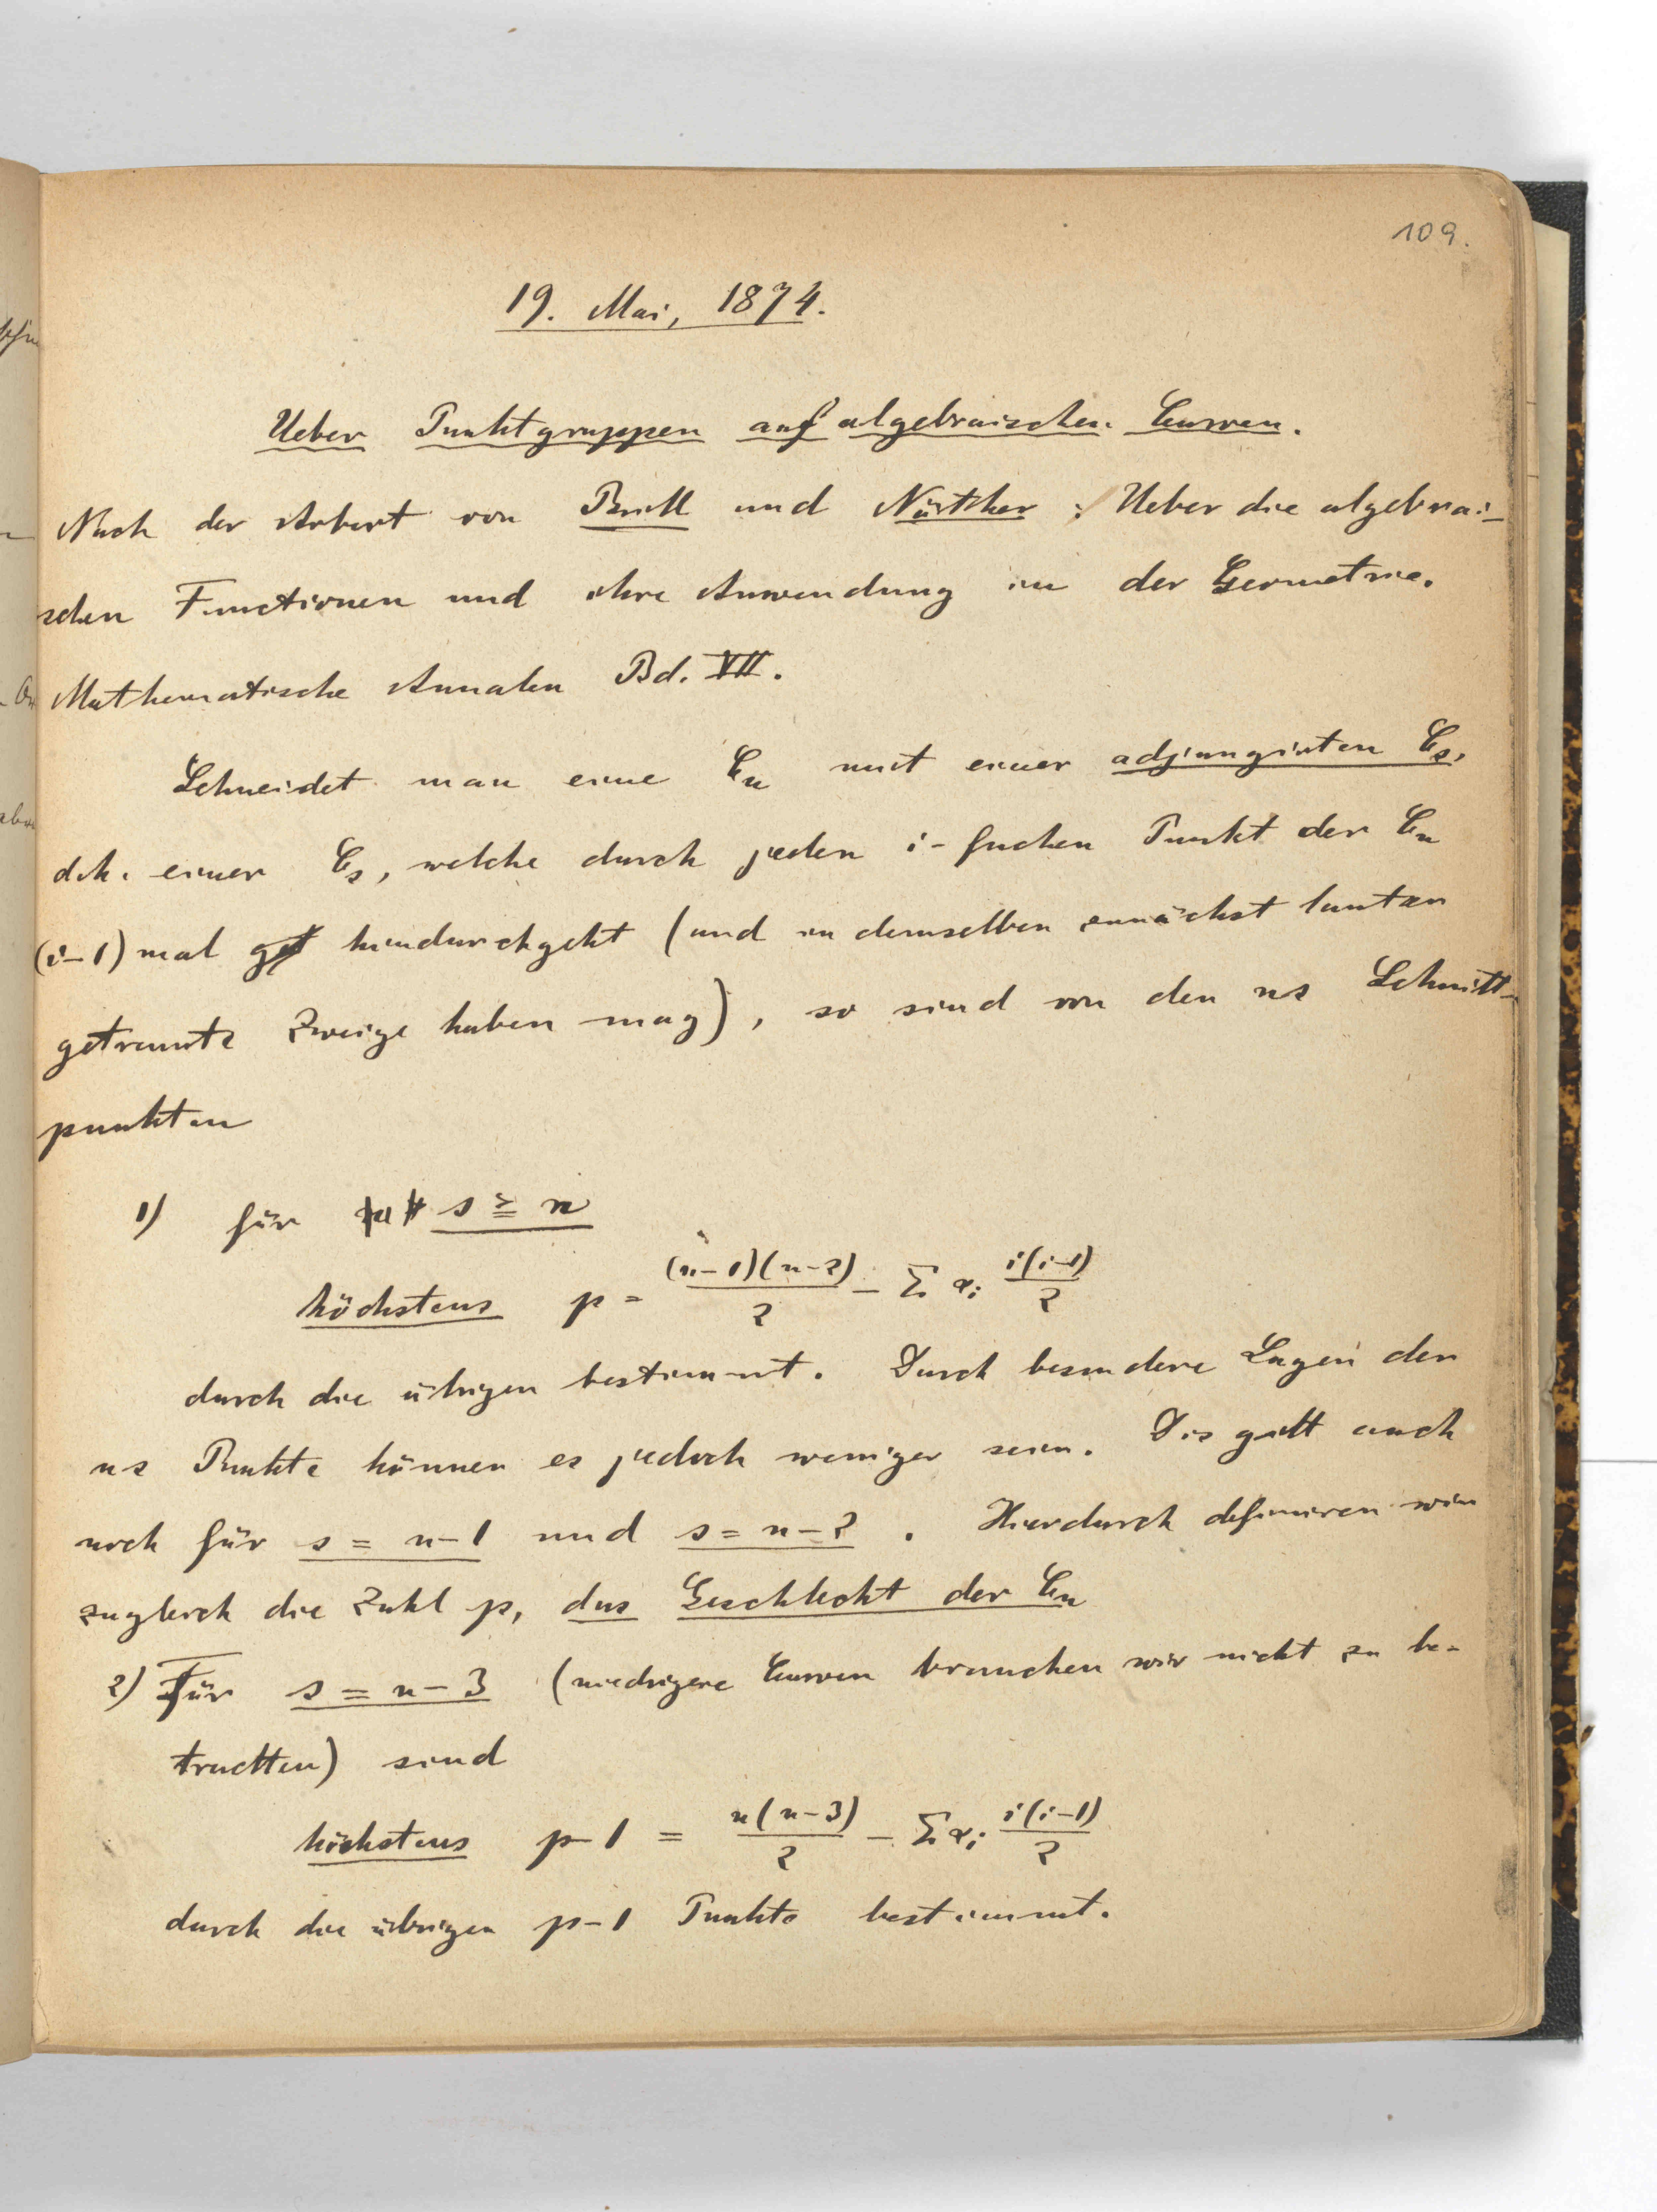 109.
19. Mai, 1874.
Ueber Punktgruppen auf algebraischen Curven.
Nach der Arbeit von Brill und Nöther: Ueber die algebrai-
schen Functionen und ihre Anwendung in der Geometrie.
Mathematische Annalen Bd. VII.
Schneidet man eine Cₙ mit einer adjungirten Cₛ,
d.h. einer Cₛ, welche durch jeden i-fachen Punkt der Cₙ
(i-1) mal hindurchgeht (und in demselben zunächst lauter
getrennte Zweige haben mag), so sind von den ns Schnitt-
punkten
1) für s ≧ n
höchstens p = (n-1)(n-2)/2 - Σ αᵢ i(i-1)/2
durch die übrigen bestimmt. Durch besondere Lagen der
ns Punkte können es jedoch weniger sein. Dies gilt auch
noch für s = n-1 und s = n-2. Hierdurch definiren wir
zugleich die Zahl p, das Geschlecht der Cₙ
2) Für s = n-3 (niedrigere Curven brauchen wir nicht zu be-
trachten) sind
höchstens p-1 = n(n-3)/2 - Σ αᵢ i(i-1)/2
durch die übrigen p-1 Punkte bestimmt.